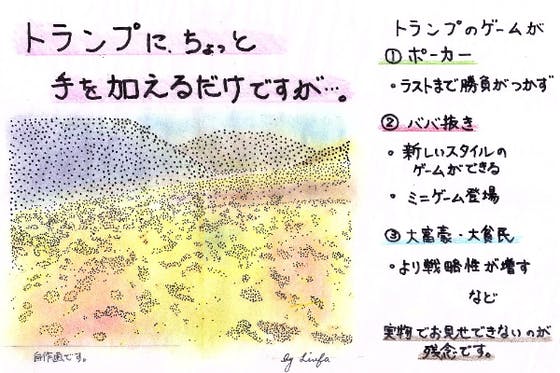 トランプに、ちょっと
手を加えるだけですが…。
自作画です。
by Linfa
トランプのゲームが
① ポーカー
・ラストまで勝負がつかず
② ババ抜き
・新しいスタイルの
ゲームができる
・ミニゲーム登場
③ 大富豪・大貧民
・より戦略性が増す
など
実物でお見せできないのが
残念です。